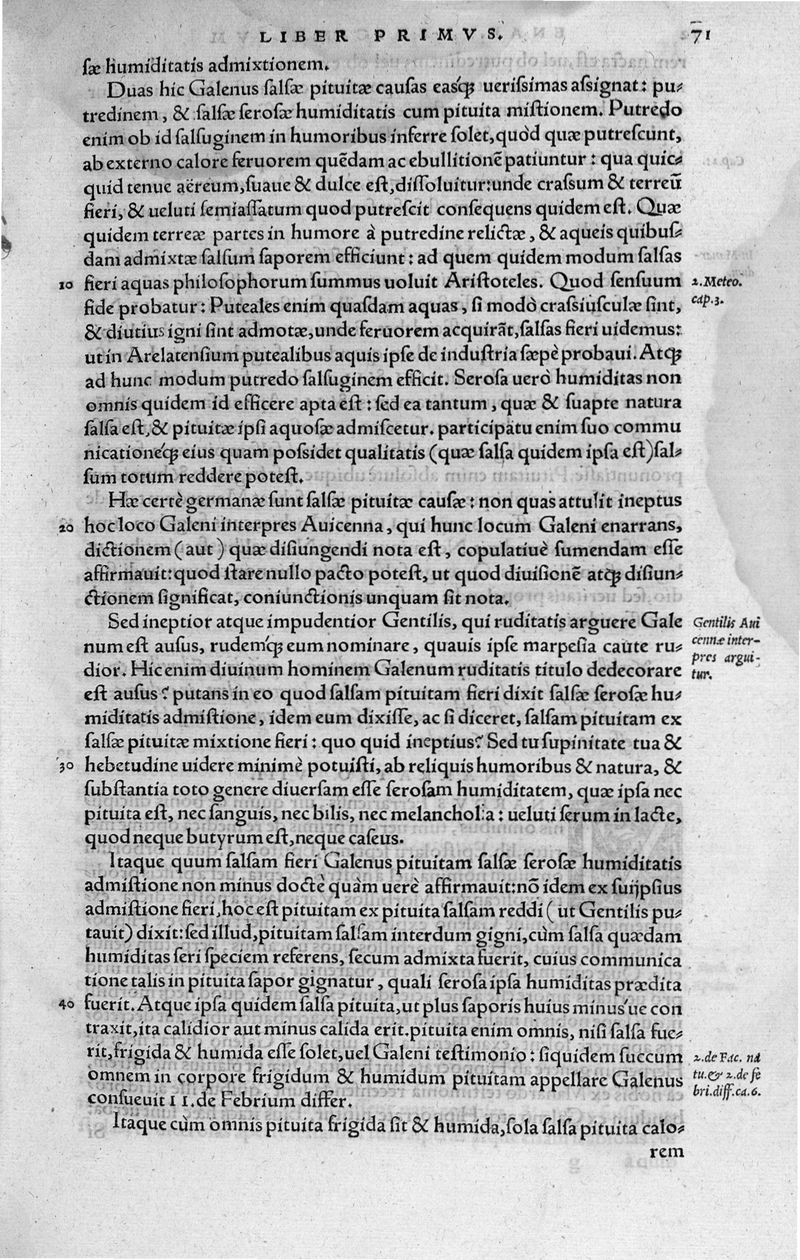 LIBER PRIMVS. 71
sæ humiditatis admixtionem.
Duas hic Galenus salsæ pituitæ causas easq́; uerissimas assignat: pu⸗
tredinem, & salsæ serosæ humiditatis cum pituita mistionem. Putredo
enim ob id salsuginem in humoribus inferre solet, quòd quæ putrescunt,
ab externo calore feruorem quẽdam ac ebullitionẽ patiuntur: qua quic⸗
quid tenue aëreum, suaue & dulce est, dissoluitur: unde crassum & terreũ
fieri, & ueluti semiassatum quod putrescit consequens quidem est. Quæ
quidem terreæ partes in humore à putredine relictæ, & aqueis quibus⸗
dam admixtæ salsum saporem efficiunt: ad quem quidem modum salsas
10 fieri aquas philosophorum summus uoluit Aristoteles. Quod sensuum
2. Meteo.
fide probatur: Puteales enim quasdam aquas, si modò crassiusculæ sint,
cap. 3.
& diutius igni sint admotæ, unde feruorem acquirãt, salsas fieri uidemus:
ut in Arelatensium putealibus aquis ipse de industria sæpè probaui. Atq́;
ad hunc modum putredo salsuginem efficit. Serosa uerò humiditas non
omnis quidem id efficere apta est: sed ea tantum, quæ & suapte natura
salsa est, & pituitæ ipsi aquosæ admiscetur. participatu enim suo commu
nicationeq́; eius quam possidet qualitatis (quæ salsa quidem ipsa est) sal⸗
sum totum reddere potest.
Hæ certè germanæ sunt salsæ pituitæ causæ: non quas attulit ineptus
20 hoc loco Galeni interpres Auicenna, qui hunc locum Galeni enarrans,
dictionem (aut) quæ disiungendi nota est, copulatiuè sumendam esse
affirmauit: quod stare nullo pacto potest, ut quod diuisionẽ atq́; disiun⸗
ctionem significat, coniunctionis unquam sit nota.
Sed ineptior atque impudentior Gentilis, qui ruditatis arguere Gale
Gentilis Aui
num est ausus, rudemq́; eum nominare, quauis ipse marpesia caute ru⸗
cennæ inter-
dior. Hic enim diuinum hominem Galenum ruditatis titulo dedecorare
pres argui-
est ausus? putans in eo quod salsam pituitam fieri dixit salsæ serosæ hu⸗
tur.
miditatis admistione, idem eum dixisse, ac si diceret, salsam pituitam ex
salsæ pituitæ mixtione fieri: quo quid ineptius? Sed tu supinitate tua &
30 hebetudine uidere minimè potuisti, ab reliquis humoribus & natura, &
substantia toto genere diuersam esse serosam humiditatem, quæ ipsa nec
pituita est, nec sanguis, nec bilis, nec melancholia: ueluti serum in lacte,
quod neque butyrum est, neque caseus.
Itaque quum salsam fieri Galenus pituitam salsæ serosæ humiditatis
admistione non minus doctè quàm uerè affirmauit: nõ idem ex suijpsius
admistione fieri, hoc est pituitam ex pituita salsam reddi (ut Gentilis pu⸗
tauit) dixit: sed illud, pituitam salsam interdum gigni, cùm salsa quædam
humiditas seri speciem referens, secum admixta fuerit, cuius communica
tione talis in pituita sapor gignatur, quali serosa ipsa humiditas prædita
40 fuerit. Atque ipsa quidem salsa pituita, ut plus saporis huius minus'ue con
traxit, ita calidior aut minus calida erit. pituita enim omnis, nisi salsa fue⸗
rit, frigida & humida esse solet, uel Galeni testimonio: siquidem succum
2. de Fac. na
omnem in corpore frigidum & humidum pituitam appellare Galenus
tu. & 2. de fe
consueuit 11. de Febrium differ.
bri. diff. ca. 6.
Itaque cùm omnis pituita frigida sit & humida, sola salsa pituita calo⸗
rem